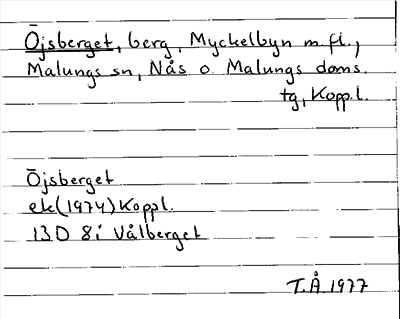 Öjsberget, berg, Myckelbyn m.fl.,
Malungs sn, Nås o. Malungs doms.
tg, Koppl.
Öjsberget
ek (1974) Koppl.
13D 8i Vålberget
T.Å. 1977